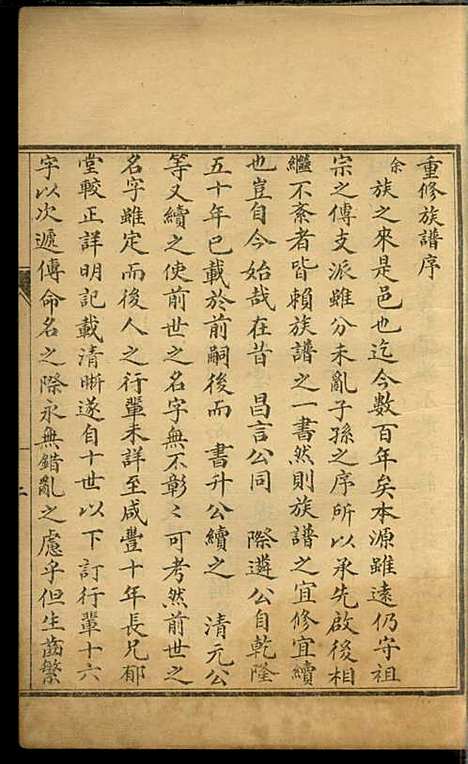 重修族譜序
余族之來是邑也迄今數百年矣本源雖遠仍守祖
宗之傳支派雖分未亂子孫之序所以承先啟後相
繼不紊者皆賴族譜之一書然則族譜之宜修宜續
也豈自今始哉在昔　昌言公同　際遴公自乾隆
五十年已載於前嗣後而　書升公續之　清元公
等又續之使前世之名字無不彰〻可考然前世之
名字雖定而後人之行輩未詳至咸豐十年長兄郁
堂較正詳明記載清晰遂自十世以下訂行輩十六
字以次遞傳命名之際永無錯亂之慮乎但生齒繁